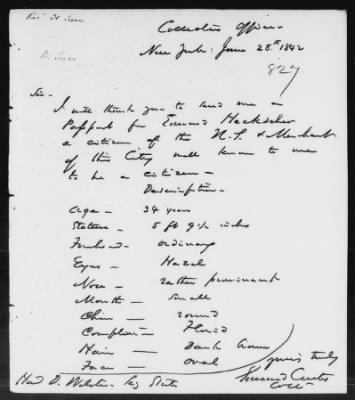 Collectors Office
New York: June 28th 1842
827
Sir -
I will thank you to send me a
Passport for Edward Heckscher
a citizen of the U.S. & Merchant
of this City well known to me
to be a citizen -
Description -
Age - 34 years
Stature - 5 ft 9½ inches
Forehead - ordinary
Eyes - Hazel
Nose - rather prominent
Mouth - small
Chin - round
Complexion - Florid
Hair - Dark brown
Face - oval
yours truly
Edward Curtis
Coll
Hon D. Webster Sey State